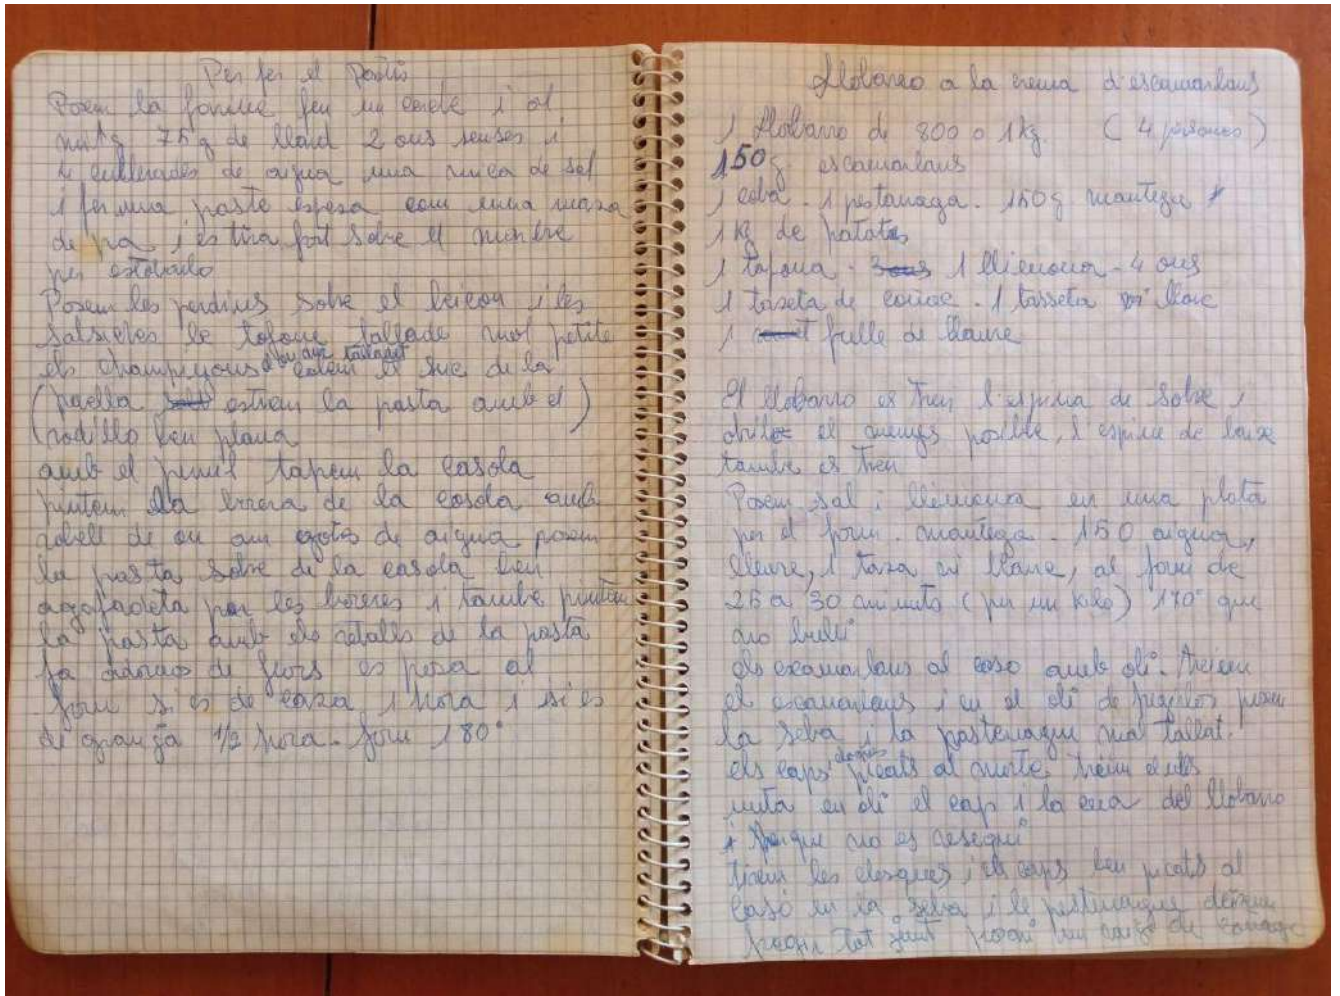 Per fer el Pastís
Posem la farina fem un cercle i al
mitg 75 g de llard 2 ous sensés i
4 cullerades de aigua una mica de sal
i fer una paste espesa com una maza
de pa i es tira fort sobre el
per estobarlo
Posem les perdius sobre el beicon i les
salsiches le tofone tallade mol petite
els champiyons el suc de la
(paella estirem la pasta amb el)
rodillo ben plana
amb el tapem la casola
pintem la brora de la casola amb
robell de ou am gotes de aigua posem
la pasta sobre de la casola ben
agafadeta per les bores i tambe pintem
la pasta amb els retalls de la pasta
fa adornos de flors es posa al
forn si es de caza 1 hora i si es
de granja 1/2 hora - forn 180°
Llobarro a la crema d'escamarlans
1 Llobarro de 800 o 1 kg. (4 persones)
150 g escamarlans
1 ceba - 1 pastanaga - 150 g mantega
1 kg de patates
1 tofona - 3 ous 1 llimona - 4 ous
1 taseta de - 1 tasseta
1 fulle de llaure
El llobarro es treu l'espina de sobre i
el menys posible, l'espina de baix
tambe es treu
Posem sal i llimona en una plata
per el forn - mantega - 150 aigua,
lleure, 1 taza vi, al forn de
25 a 30 minuts (per un kilo) 170° que
no bulli
els escamarlans al caso amb oli. treiem
el escamarlans i en el oli de fregirlos posem
la seba i la pastanague tallat.
els caps picats al
unta en oli el cap i la cua del llobarro
i perque no es resequi
tirem les closques i els caps ben picats al
caso en la seba i le pastanague deixem
fregir tot junt